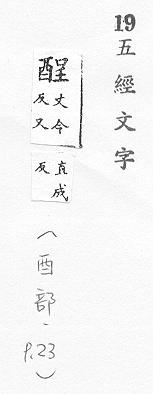 19
五經文字
酲
丈今
反又
直成
反
（酉部、P.23）